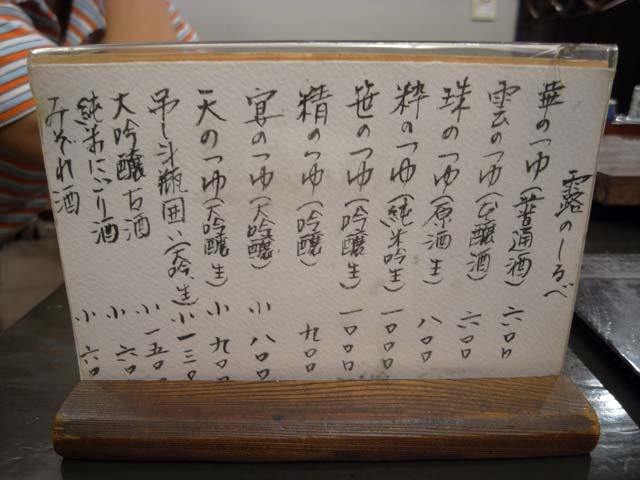 露のしるべ
華のつゆ(普通酒) 六〇〇
雲のつゆ(本醸酒) 六〇〇
珠のつゆ(原酒生) 八〇〇
粋のつゆ(純米吟生) 一〇〇〇
笹のつゆ(吟醸生) 一〇〇〇
精のつゆ(吟醸) 九〇〇
宴のつゆ(大吟醸) 小 八〇〇
天のつゆ(大吟醸生) 小 九〇〇
吊し斗瓶囲い(大吟、生) 小 一三〇
大吟醸古酒 小 一五〇
純米にごり酒 小 六〇
みぞれ酒 小 六〇